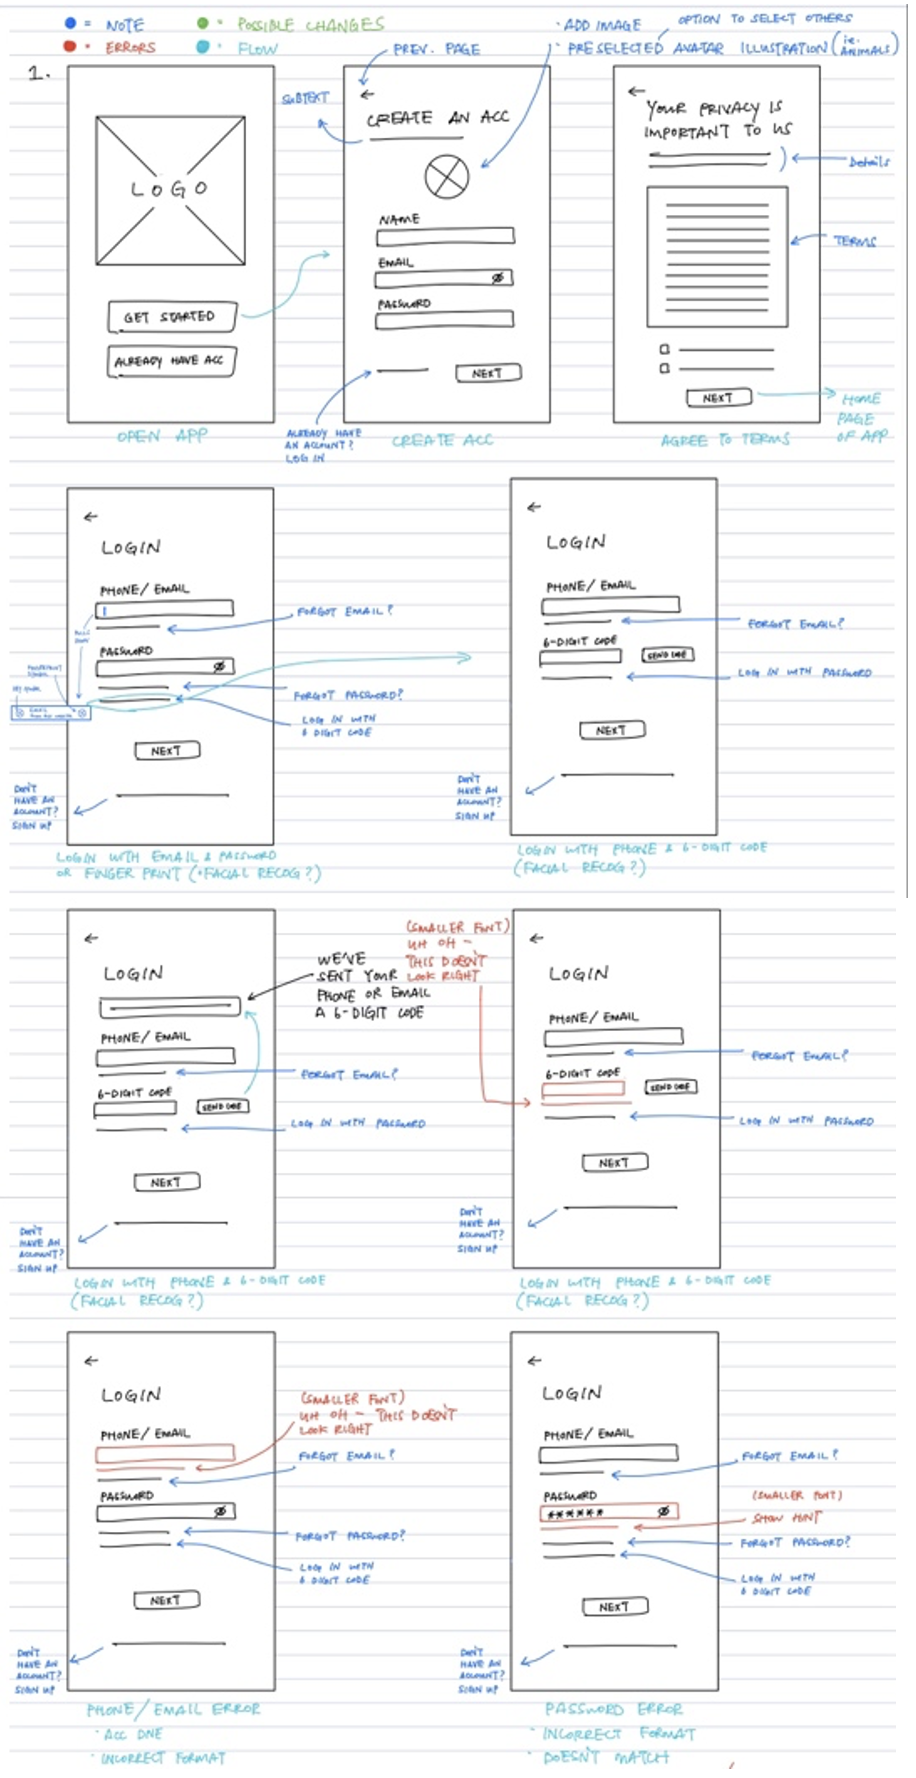 = NOTE
= POSSIBLE CHANGES
= ERRORS
= FLOW
· ADD IMAGE
OPTION TO SELECT OTHERS
· PRESELECTED AVATAR ILLUSTRATION (ie. ANIMALS)
PREV. PAGE
1.
LOGO
GET STARTED
ALREADY HAVE ACC
OPEN APP
SUBTEXT
CREATE AN ACC
NAME
EMAIL
PASSWORD
NEXT
ALREADY HAVE
AN ACCOUNT?
LOG IN
CREATE ACC
YOUR PRIVACY IS
IMPORTANT TO US
Details
TERMS
NEXT
HOME
PAGE
OF APP
AGREE TO TERMS
LOGIN
PHONE/ EMAIL
FORGOT EMAIL?
PASSWORD
FORGOT PASSWORD?
LOG IN WITH
6 DIGIT CODE
NEXT
DON'T
HAVE AN
ACCOUNT?
SIGN UP
LOGIN WITH EMAIL & PASSWORD
OR FINGER PRINT (+FACIAL RECOG?)
LOGIN
PHONE/ EMAIL
FORGOT EMAIL?
6-DIGIT CODE
SEND CODE
LOG IN WITH PASSWORD
NEXT
DON'T
HAVE AN
ACCOUNT?
SIGN UP
LOGIN WITH PHONE & 6-DIGIT CODE
(FACIAL RECOG?)
LOGIN
WE'VE
SENT YOUR
PHONE OR EMAIL
A 6-DIGIT CODE
PHONE/ EMAIL
FORGOT EMAIL?
6-DIGIT CODE
SEND CODE
LOG IN WITH PASSWORD
NEXT
DON'T
HAVE AN
ACCOUNT?
SIGN UP
LOGIN WITH PHONE & 6-DIGIT CODE
(FACIAL RECOG?)
(SMALLER FONT)
UH OH -
THIS DOESN'T
LOOK RIGHT
LOGIN
PHONE/ EMAIL
FORGOT EMAIL?
6-DIGIT CODE
SEND CODE
LOG IN WITH PASSWORD
NEXT
DON'T
HAVE AN
ACCOUNT?
SIGN UP
LOGIN WITH PHONE & 6-DIGIT CODE
(FACIAL RECOG?)
LOGIN
(SMALLER FONT)
UH OH - THIS DOESN'T
LOOK RIGHT
PHONE/ EMAIL
FORGOT EMAIL?
PASSWORD
FORGOT PASSWORD?
LOG IN WITH
6 DIGIT CODE
NEXT
DON'T
HAVE AN
ACCOUNT?
SIGN UP
PHONE/EMAIL ERROR
· ACC DNE
· INCORRECT FORMAT
LOGIN
PHONE/ EMAIL
FORGOT EMAIL?
PASSWORD
******
(SMALLER FONT)
SHOW HINT
FORGOT PASSWORD?
LOG IN WITH
6 DIGIT CODE
NEXT
DON'T
HAVE AN
ACCOUNT?
SIGN UP
PASSWORD ERROR
· INCORRECT FORMAT
· DOESN'T MATCH